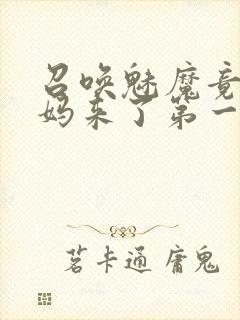 召唤魅魔竟
妈来了第一
茗卡通 庸鬼